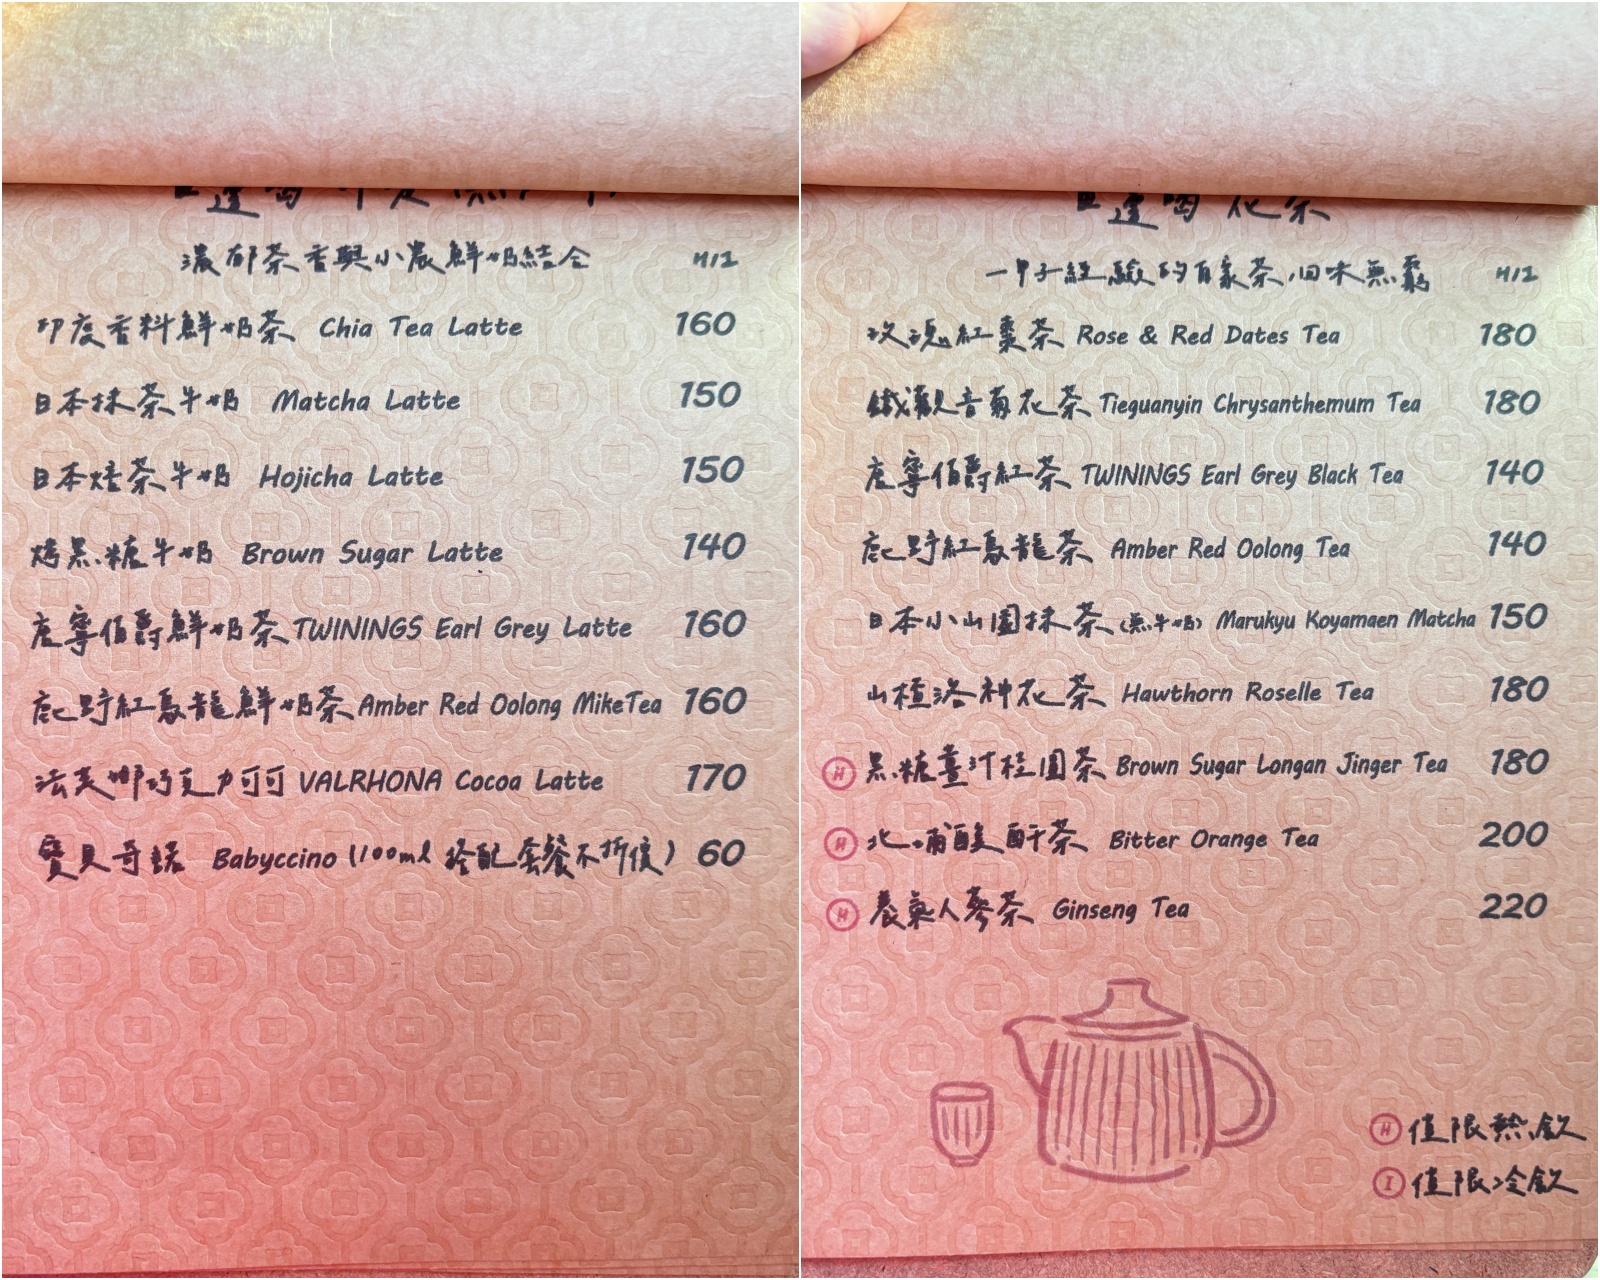 濃郁茶香與小農鮮奶結合 H/I
印度香料鮮奶茶 Chia Tea Latte 160
日本抹茶牛奶 Matcha Latte 150
日本焙茶牛奶 Hojicha Latte 150
烤黑糖牛奶 Brown Sugar Latte 140
唐寧伯爵鮮奶茶 TWININGS Earl Grey Latte 160
鹿野紅烏龍鮮奶茶 Amber Red Oolong MikeTea 160
法芙娜巧克力可可 VALRHONA Cocoa Latte 170
寶貝奇諾 Babyccino (100ml 搭配套餐不折價) 60
逢喝花茶
一甲子經驗的自家茶,回味無窮 H/I
玫瑰紅棗茶 Rose & Red Dates Tea 180
鐵觀音菊花茶 Tieguanyin Chrysanthemum Tea 180
唐寧伯爵紅茶 TWININGS Earl Grey Black Tea 140
鹿野紅烏龍茶 Amber Red Oolong Tea 140
日本小山園抹茶(無牛奶) Marukyu Koyamaen Matcha 150
山楂洛神花茶 Hawthorn Roselle Tea 180
H 黑糖薑汁桂圓茶 Brown Sugar Longan Jinger Tea 180
H 北埔酸酐茶 Bitter Orange Tea 200
H 養氣人蔘茶 Ginseng Tea 220
H 值限熱飲
I 值限冷飲